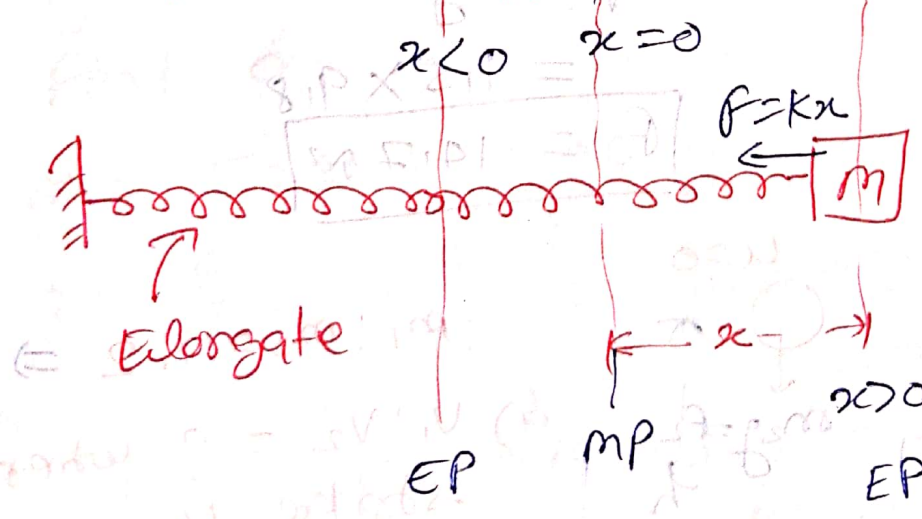 x<0 x=0
F=Kx
m
Elongate
x
x>0
EP MP EP